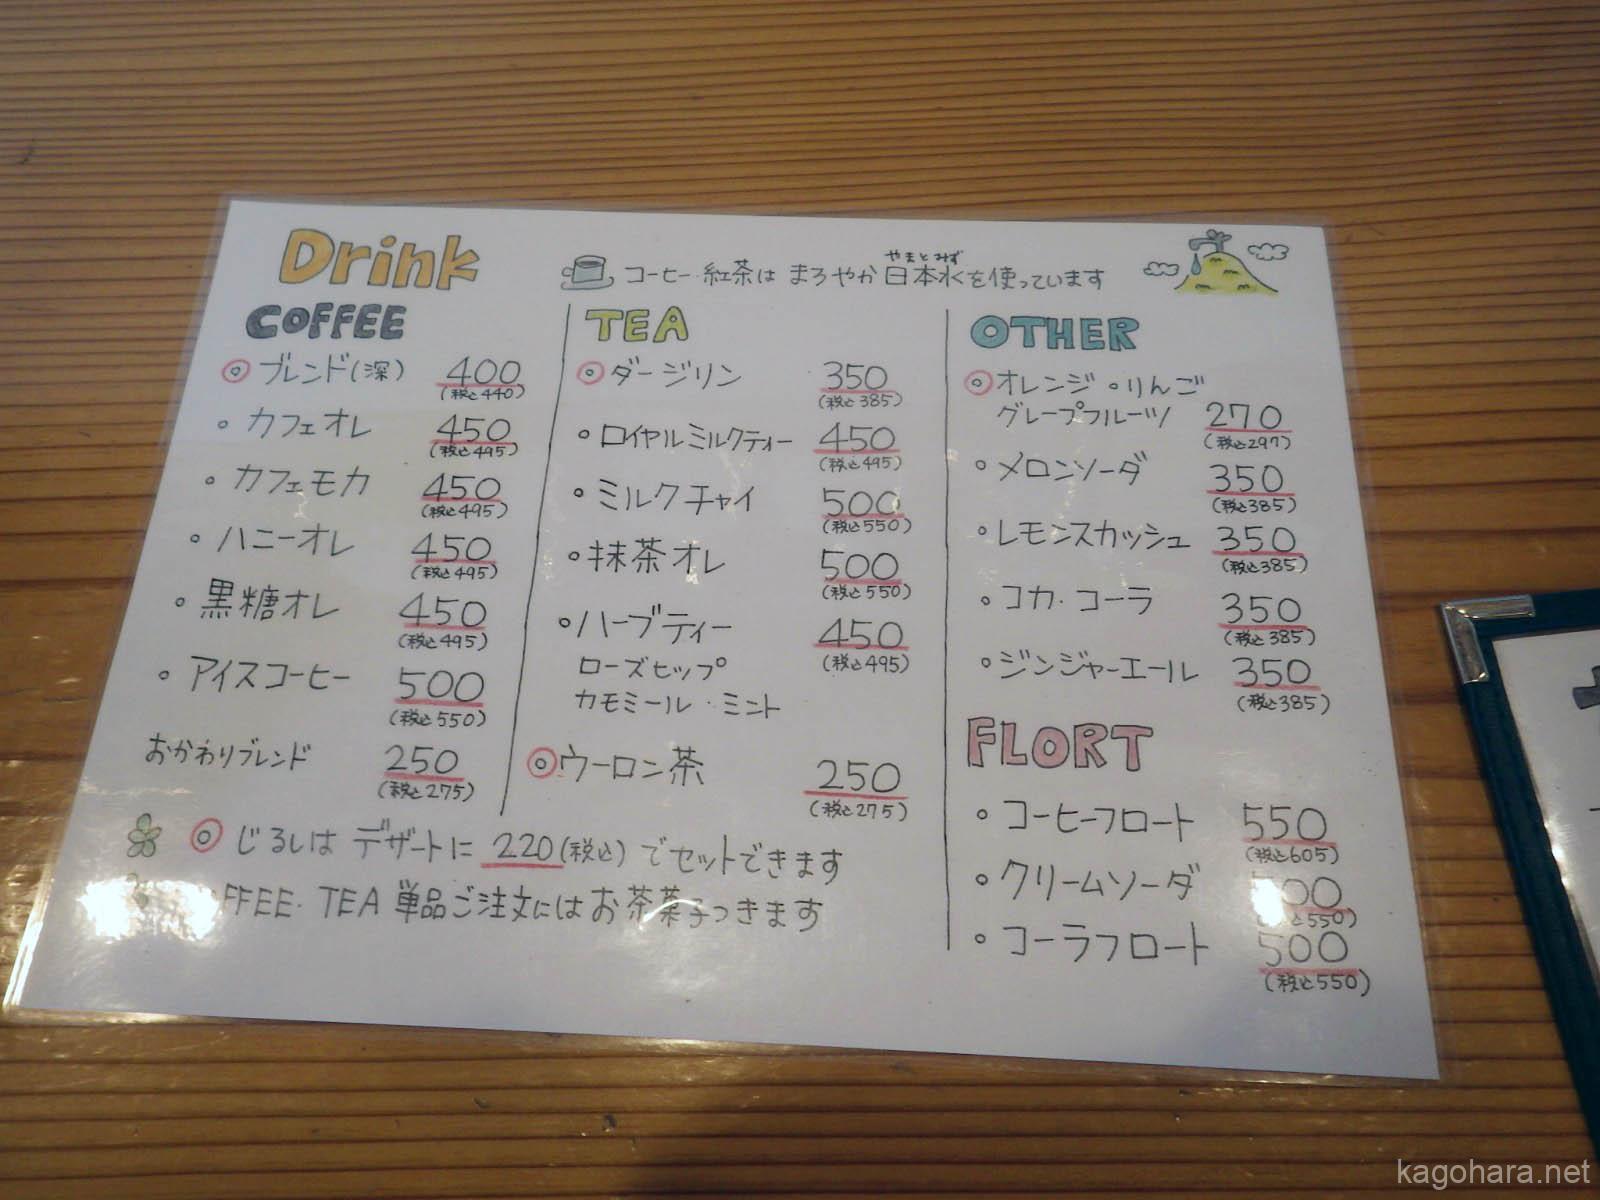 Drink
コーヒー・紅茶は まろやか 日本水を使っています
やまとみず
COFFEE
◎ ブレンド(深) 400
(税込440)
・カフェオレ 450
(税込495)
・カフェモカ 450
(税込495)
・ハニーオレ 450
(税込495)
・黒糖オレ 450
(税込495)
・アイスコーヒー 500
(税込550)
おかわりブレンド 250
(税込275)
TEA
◎ ダージリン 350
(税込385)
・ロイヤルミルクティー 450
(税込495)
・ミルクチャイ 500
(税込550)
・抹茶オレ 500
(税込550)
・ハーブティー 450
(税込495)
ローズヒップ
カモミール・ミント
◎ ウーロン茶 250
(税込275)
OTHER
◎ オレンジ・りんご
グレープフルーツ 270
(税込297)
・メロンソーダ 350
(税込385)
・レモンスカッシュ 350
(税込385)
・コカ・コーラ 350
(税込385)
・ジンジャーエール 350
(税込385)
FLORT
・コーヒーフロート 550
(税込605)
・クリームソーダ
550)
・コーラフロート 500
(税込550)
◎ じるしは デザートに 220(税込)でセットできます
FFEE・TEA 単品ご注文にはお茶菓子つきます
kagohara.net